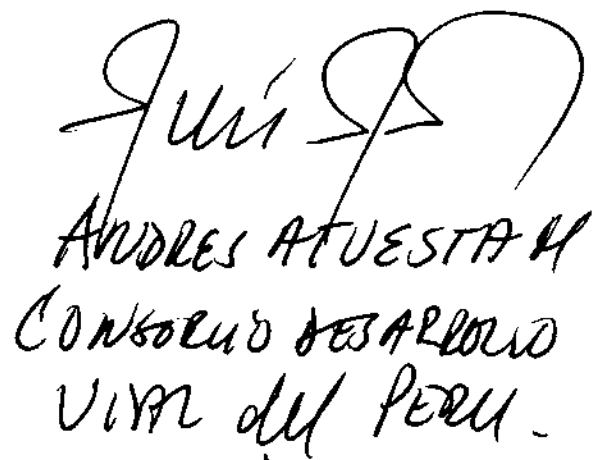 ANDRES ATUESTA M
CONSORCIO DESARROLLO
VIAL del PERU.